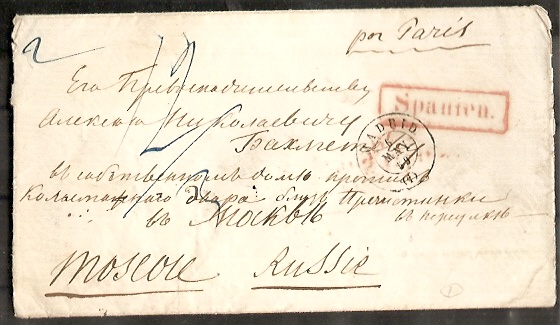 2
por Paris
Его Превосходительству
Spanien.
Алексею Николаевичу
MADRID
Бахмет
въ собственномъ домѣ противъ
колымажнаго двора близъ Пречистинки
въ переулкѣ
въ Москвѣ
Moscou Russie